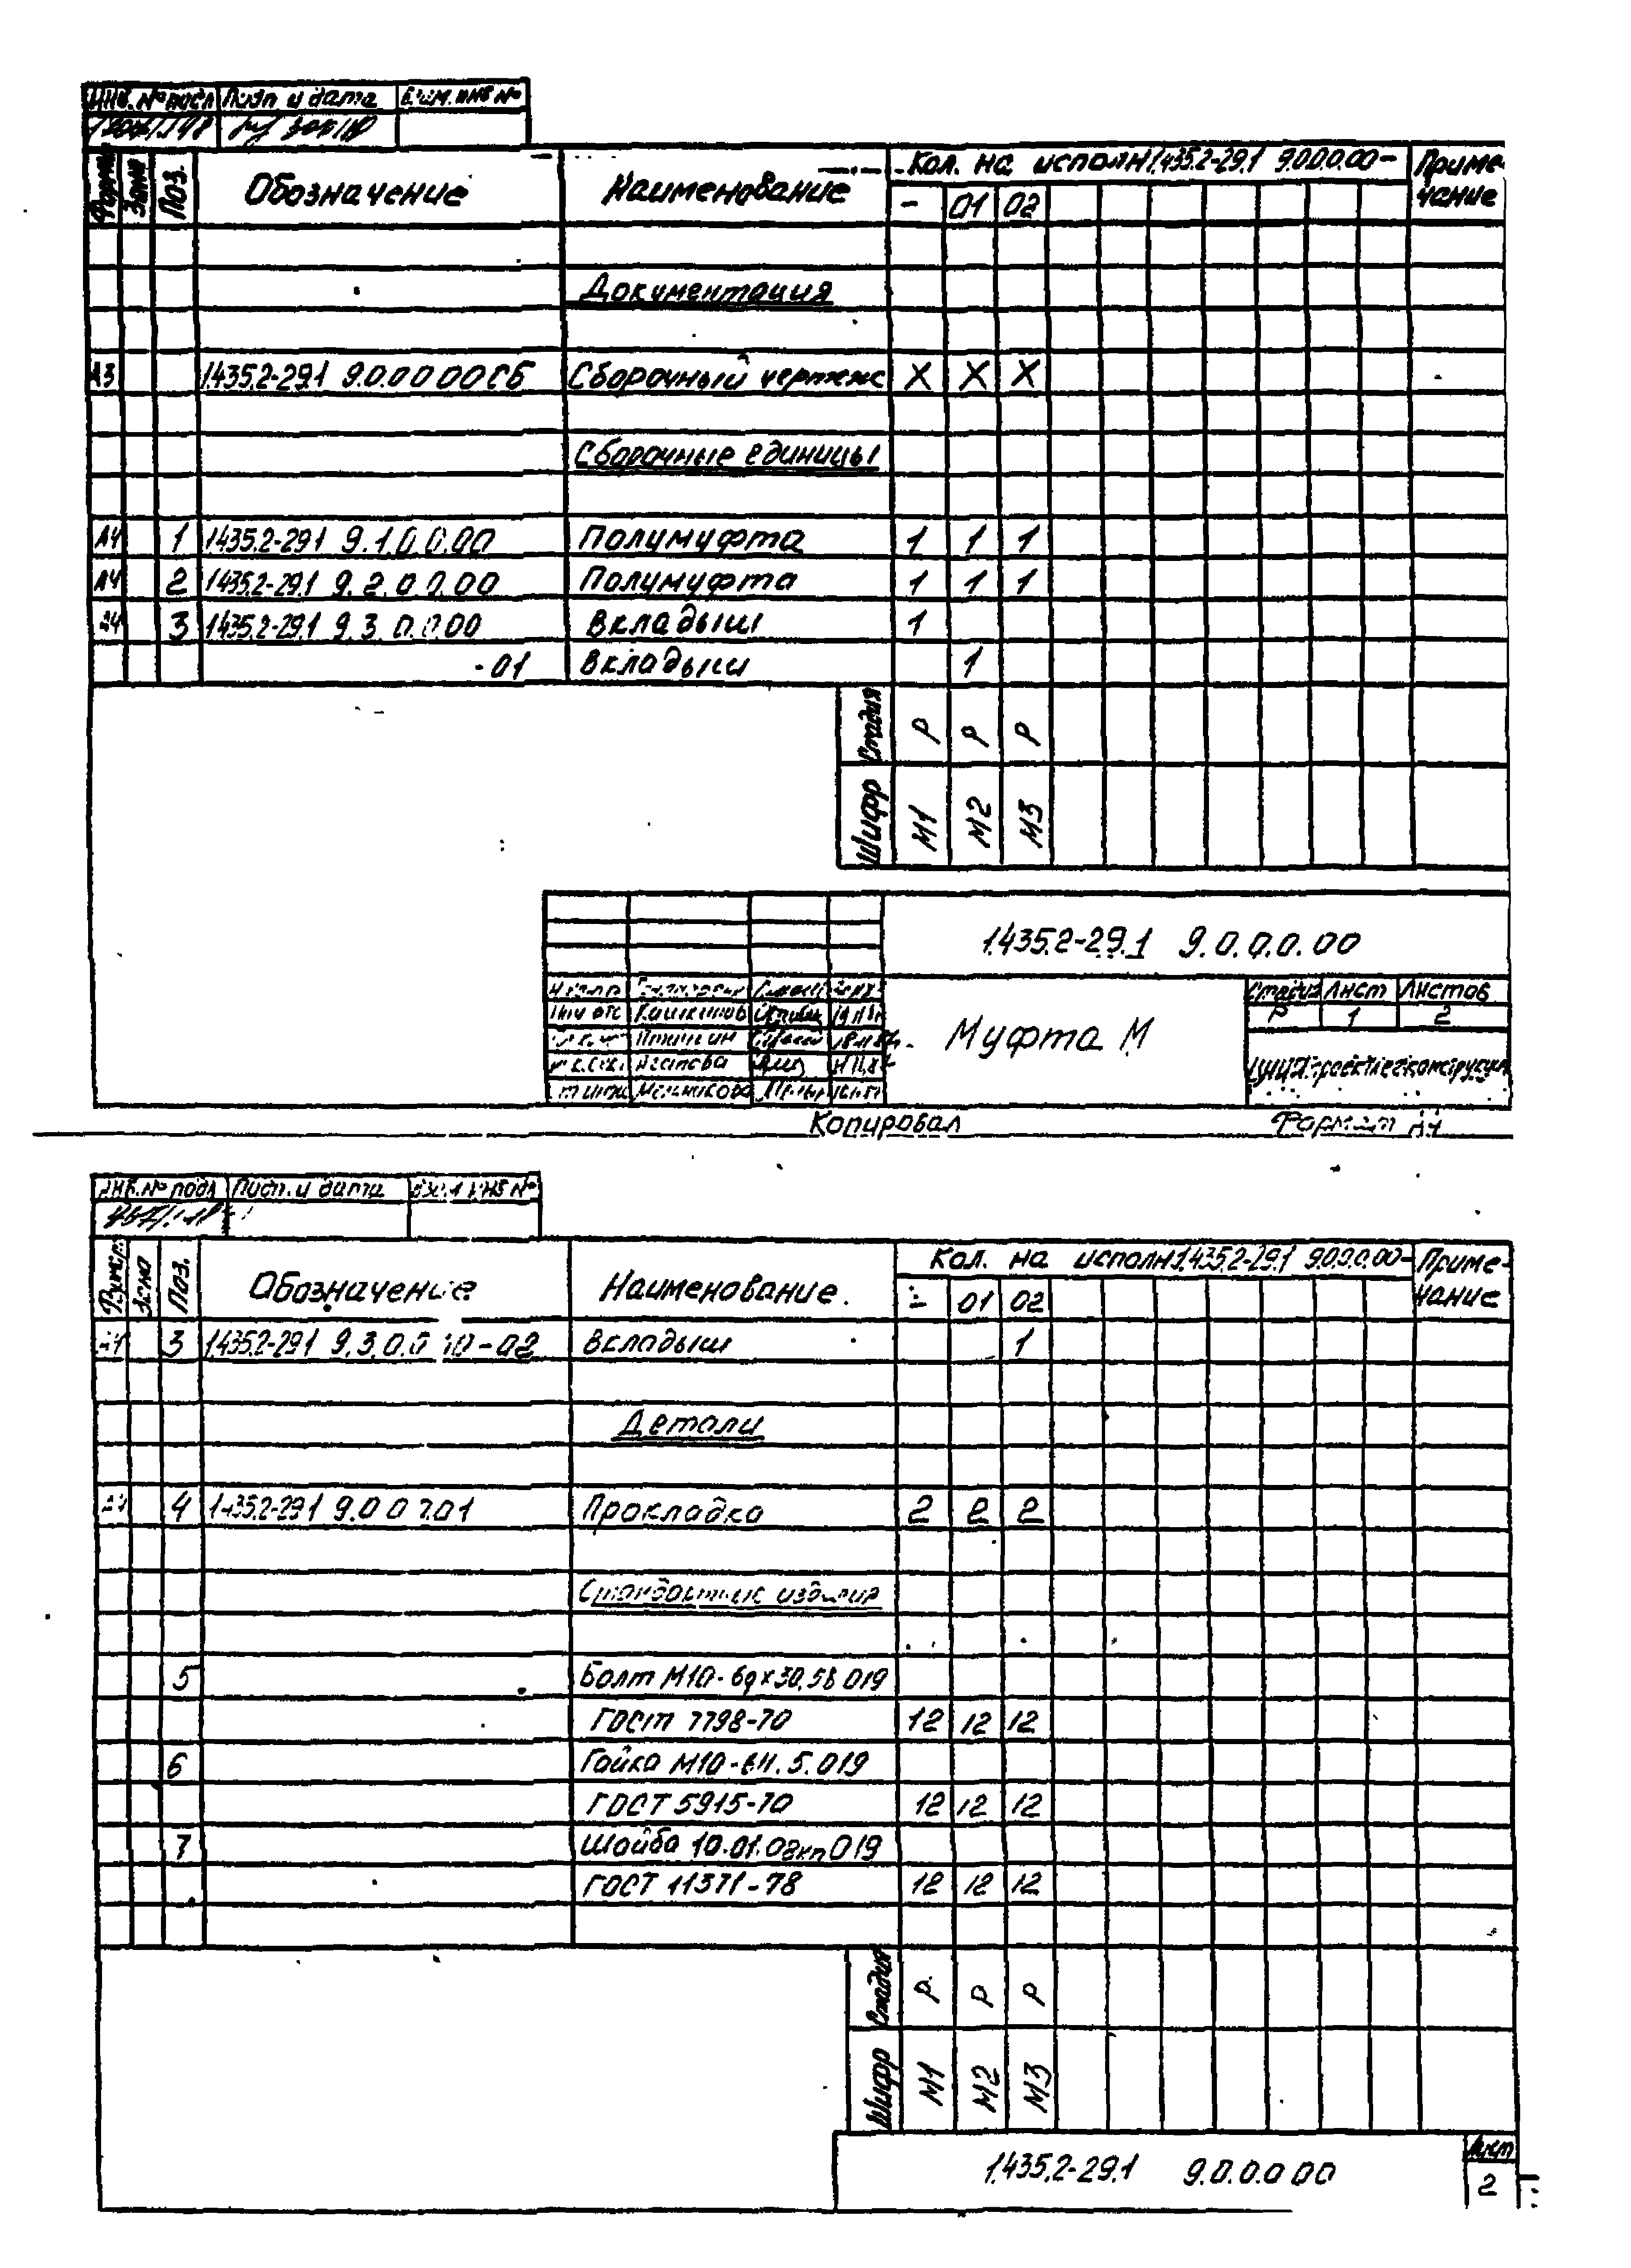 Инв. № подл Подп и дата Взам. инв №
Формат Зона Поз. Обозначение Наименование Кол. на исполн 1.435.2-29.1 9.0.0.0.00- Приме-
чание
- 01 02
Документация
А3 1.435.2-29.1 9.0.0.0.00СБ Сборочный чертеж X X X
Сборочные единицы
А4 1 1.435.2-29.1 9.1.0.0.00 Полумуфта 1 1 1
А4 2 1.435.2-29.1 9.2.0.0.00 Полумуфта 1 1 1
А4 3 1.435.2-29.1 9.3.0.0.00 Вкладыш 1
-01 Вкладыш 1
Стадия Р Р Р
Шифр М1 М2 М3
1.435.2-29.1 9.0.0.0.00
Муфта М
Стадия Лист Листов
Р 1 2
Мельникова
Копировал Формат А4
Инв. № подл Подп. и дата Взам инв №
Формат Зона Поз. Обозначение Наименование Кол. на исполн 1.435.2-29.1 9.0.0.0.00- Приме-
чание
- 01 02
А4 3 1.435.2-29.1 9.3.0.0.00-02 Вкладыш 1
Детали
А4 4 1.435.2-29.1 9.0.0.0.01 Прокладка 2 2 2
Стандартные изделия
5 Болт М10-6gх30.58 019
ГОСТ 7798-70 12 12 12
6 Гайка М10-6Н.5.019
ГОСТ 5915-70 12 12 12
7 Шайба 10.01.08кп 019
ГОСТ 11371-78 12 12 12
Стадия Р Р Р
Шифр М1 М2 М3
1.435.2-29.1 9.0.0.0.00
Лист
2